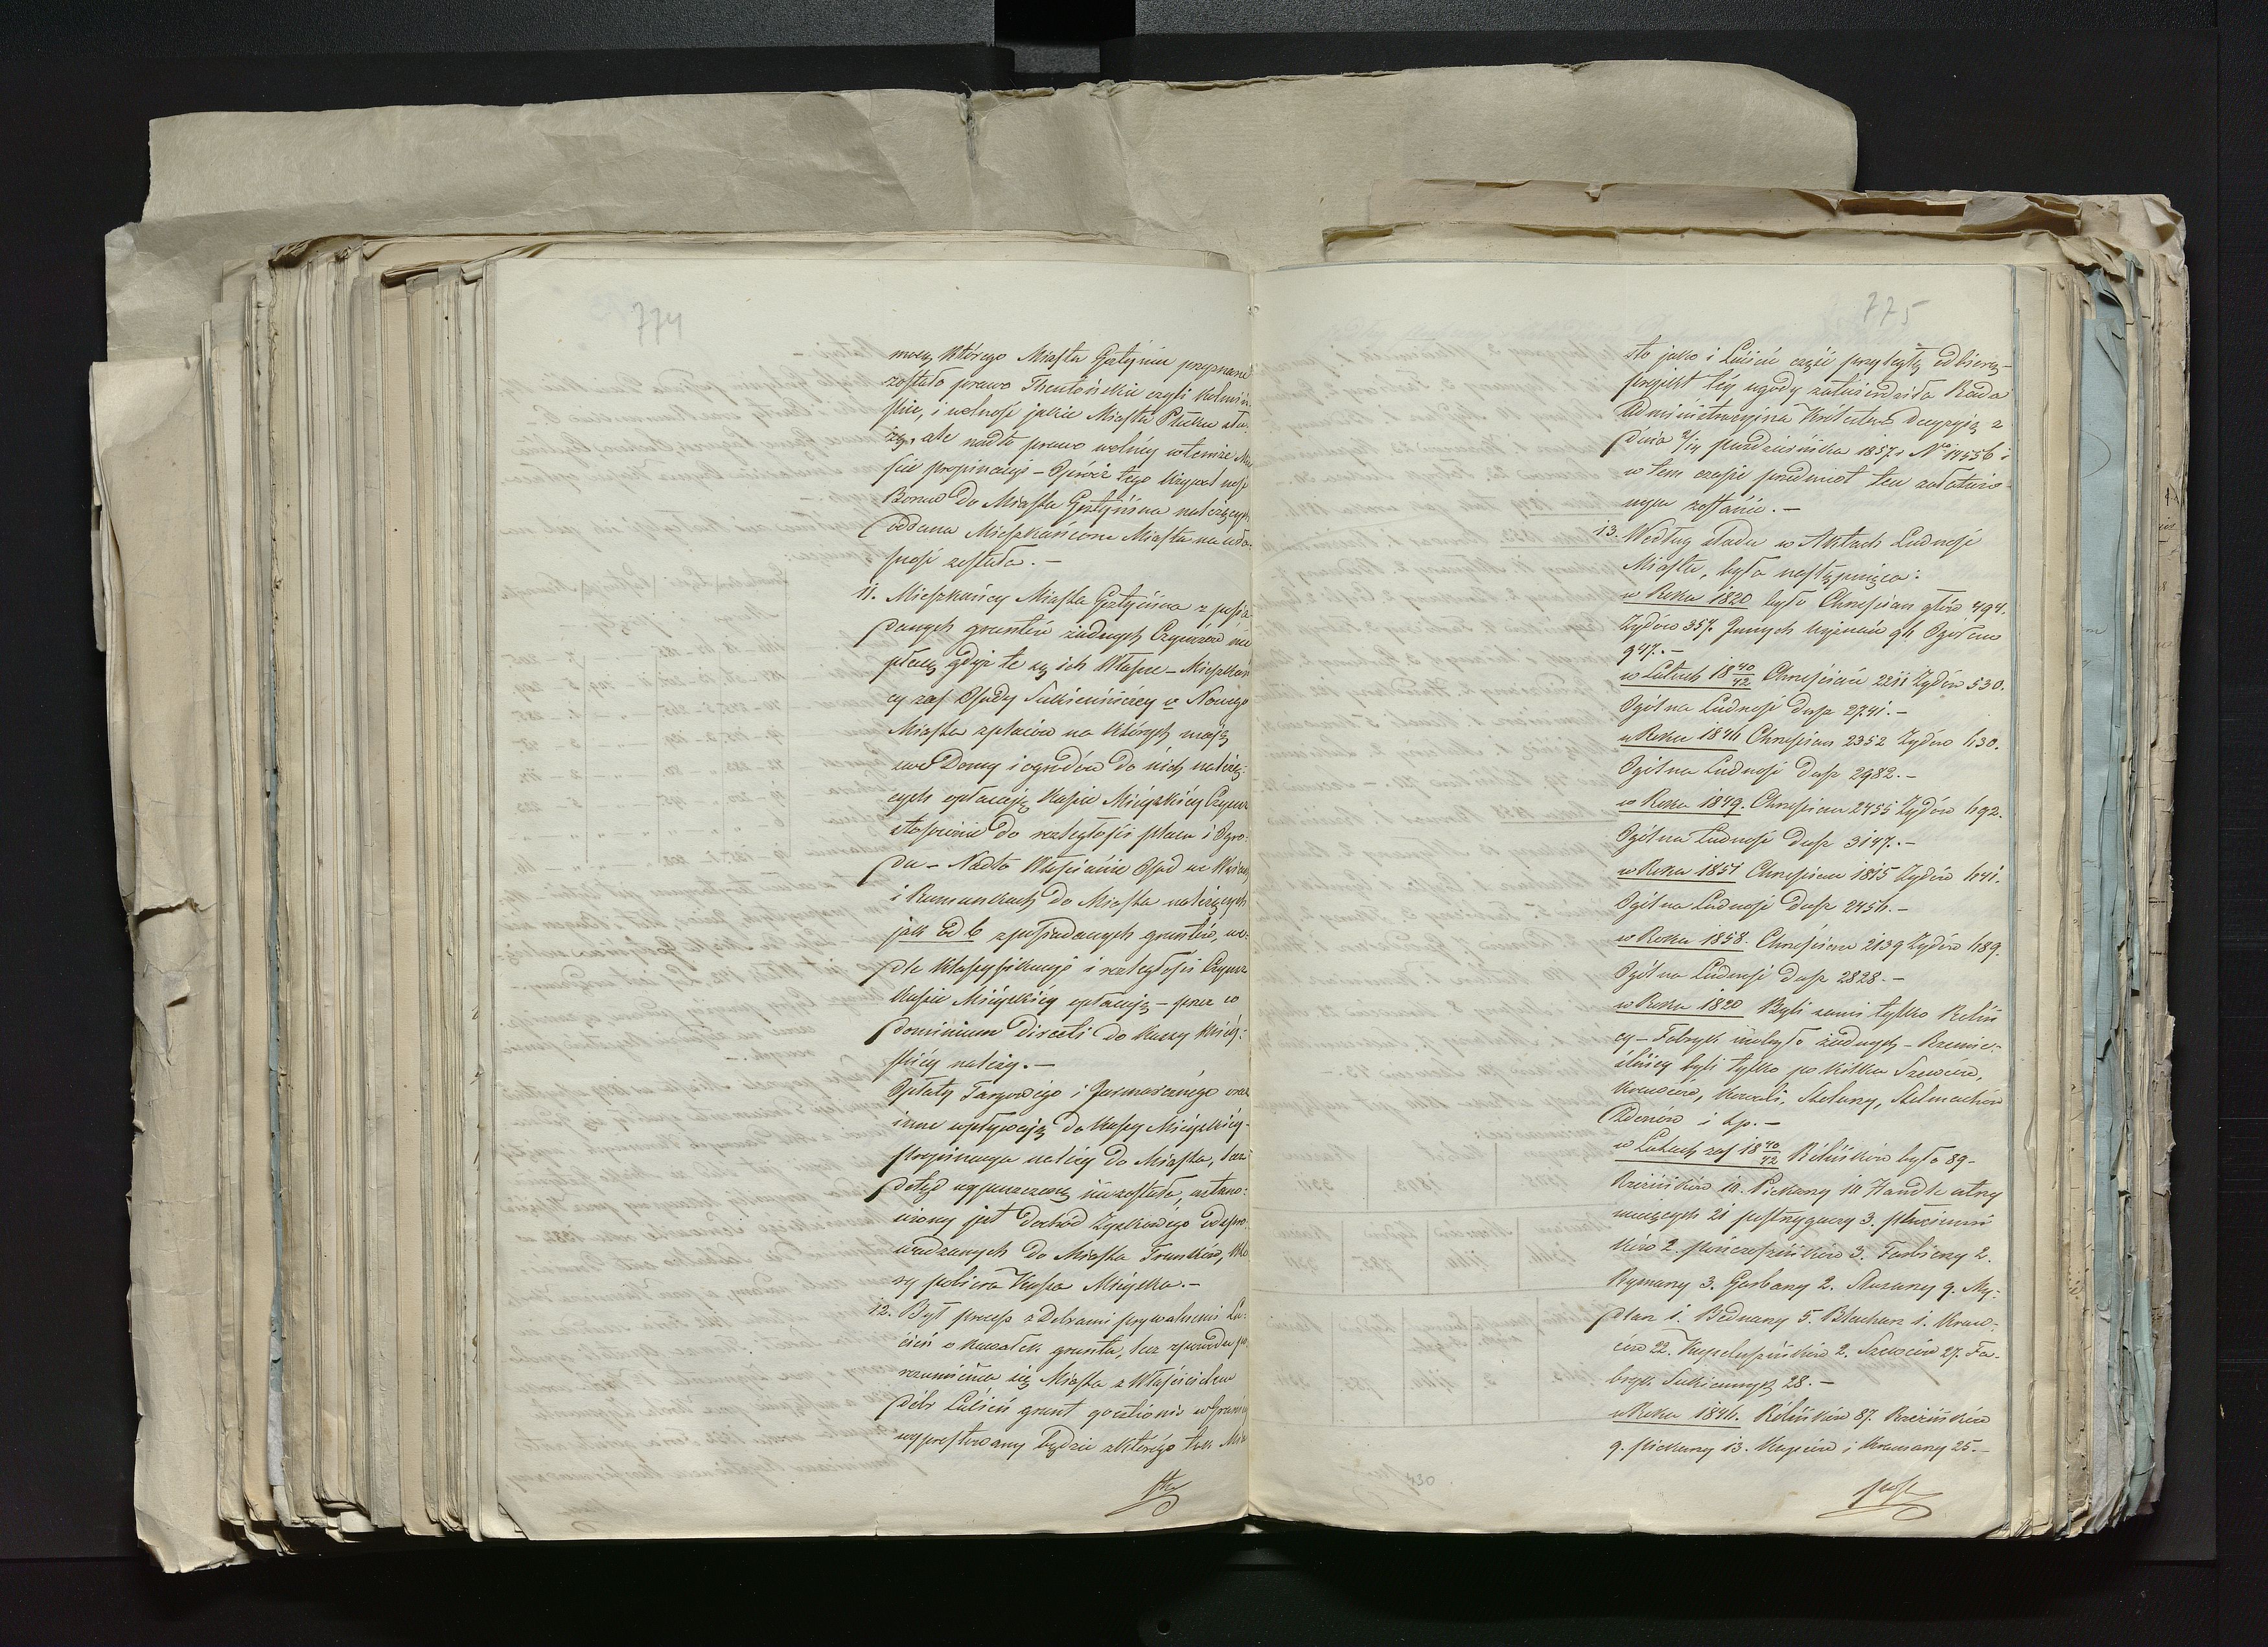 774
mocą którego Miasta Gostynin przyznane
zostało prawo Theutońskie czyli Kolmiń-
skie, i wolność jakie Miasta Płocku słu-
żą, ale nadto prawo wolnéy w temże Mie
ście propinacyi – Oprócz tego
Borne do Miasta Gostynina należących
oddana Mieszkańcom Miasta na wła-
sność została. –
11. Mieszkańcy Miasta Gostynina z posia
danych gruntów żadnych Czynszów nie
płacą gdyż te są ich Własne – Mieszkań
cy zaś Osady Sukienniczéy v Nowego
Miasta z placów na których mają
swe Domy i ogrodów do nich należą-
cych opłacają Kassie Miéyskiéy Czynsz
stosownie do rozległości placu i Ogro-
du – Nadto Włościanie Osad
i Rumunkach do Miasta należących
jak ad 6 z posiadanych gruntów, we-
dle klassyfikacyi i rozległości Czynsz
Kassie Miéyskiéy opłacają – prze co
dominium directi do Kassy Miéy-
skiéy należy. –
Opłaty Targowego i Jarmarcznego oraz
inne wpływają do Kassy Miéyskiéy –
Propinacya należy do Miasta, lecz
dotąd wypuszczoną nie została, ustano-
wiony jest dochód Zyskowego od spro-
wadzanych do Miasta Trunków, któ
ry pobiera Kassa Miéyska. –
12. Był process z Dobrami prywatnemi Lu-
cień o kawałek gruntu, lecz z powodu po-
rozumienia się Miasta z Właścicielem
dóbr Lucień grunt qoestionis w Granicy
wyprostowany będzie z którego tak Mia
775
sto jako i Lucień część przyległą odbierą –
projekt téy ugody zatwierdziła Rada
Administracyjna Królestwa decyzyją z
dnia 2/14 Października 1857 r. No 14556 i
w tem czasie przedmiot ten załatwio-
nym zostanie. –
13. Według śladu w Aktach Ludność
Miasta, była następująca:
w Roku 1820 było Chrześcian głów 494.
Żydów 357. Innych wyznań 96. Ogółem
947. –
w Latach 1840/42 Chrześcian 2211 Żydów 530.
Ogólna Ludność dusz 2741. –
w Roku 1846 Chrześcian 2352 Żydów 630.
Ogólna Ludność dusz 2982. –
w Roku 1849. Chrześcian 2455 Żydów 692.
Ogólna Ludność dusz 3147. –
w Roku 1851 Chrześcian 1815 Żydów 641.
Ogólna Ludność dusz 2456. –
w Roku 1858. Chrześcian 2139 Żydów 689.
Ogólna Ludność dusz 2828. –
w Roku 1820 Byli sami tylko Rolni
cy – Fabryk niebyło żadnych – Rzemie-
ślnicy byli tylko po kilku Szewców,
Krawców, Kowali, Stolarzy, Stelmachów
Zdunów i t.p. –
w Latach zaś 1840/42 Rolników było 89 –
Rzeźników 10. Piekarzy 10 Handle utrzy
mujących 21 postrzygaczy 3. płócienni
ków 2. pończoszników 3. Farbierzy 2.
Rymarzy 3. Garbarzy 2. Stolarzy 9. My-
dlarz 1. Bednarzy 5. Blacharz 1. Kraw-
ców 22. Kapeluszników 2. Szewców 27. Fa-
bryk Sukiennych 28. –
w Roku 1846. Rolników 87. Rzeźników
9. piekarzy 13. Kupców i Kramarzy 25. –
430